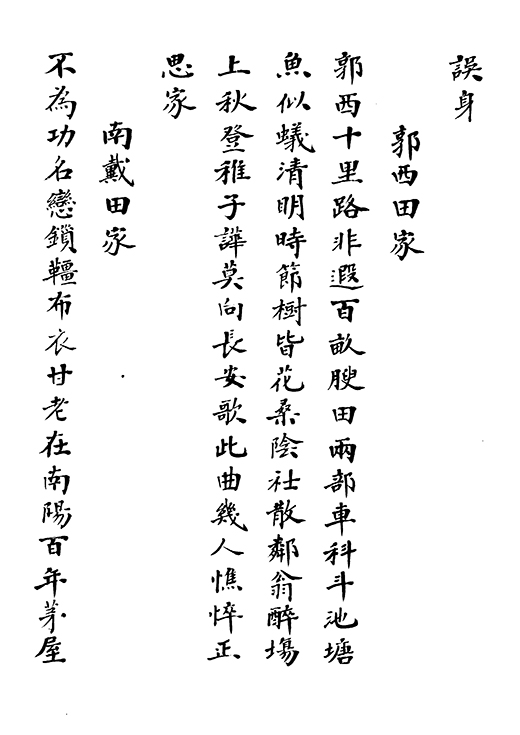 誤身
郭西田家
郭西十里路非遐百畝腴田兩部車科斗池塘
魚似蟻清明時節樹皆花桑陰社散鄰翁醉塲
上秋登稚子譁莫向長安歌此曲幾人憔悴正
思家
南戴田家
不為功名戀鎖韁布衣甘老在南陽百年茅屋